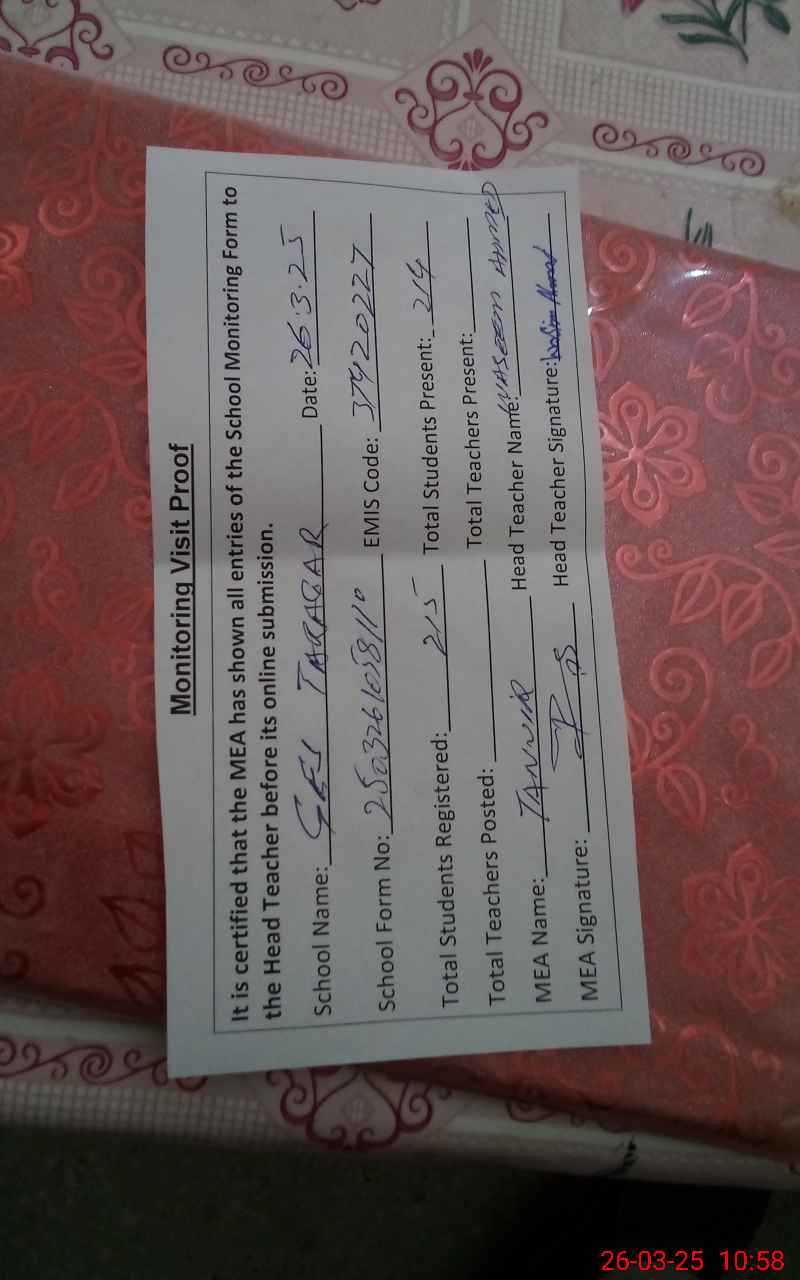 Monitoring Visit Proof
It is certified that the MEA has shown all entries of the School Monitoring Form to
the Head Teacher before its online submission.
School Name: GES TARABAR Date: 26.3.25
School Form No: EMIS Code: 37420227
Total Students Registered: 215 Total Students Present: 214
Total Teachers Posted: Total Teachers Present:
MEA Name: TANVIR Head Teacher Name: WASEEM AHMED
MEA Signature: Head Teacher Signature: Wasim Ahmad
26-03-25 10:58